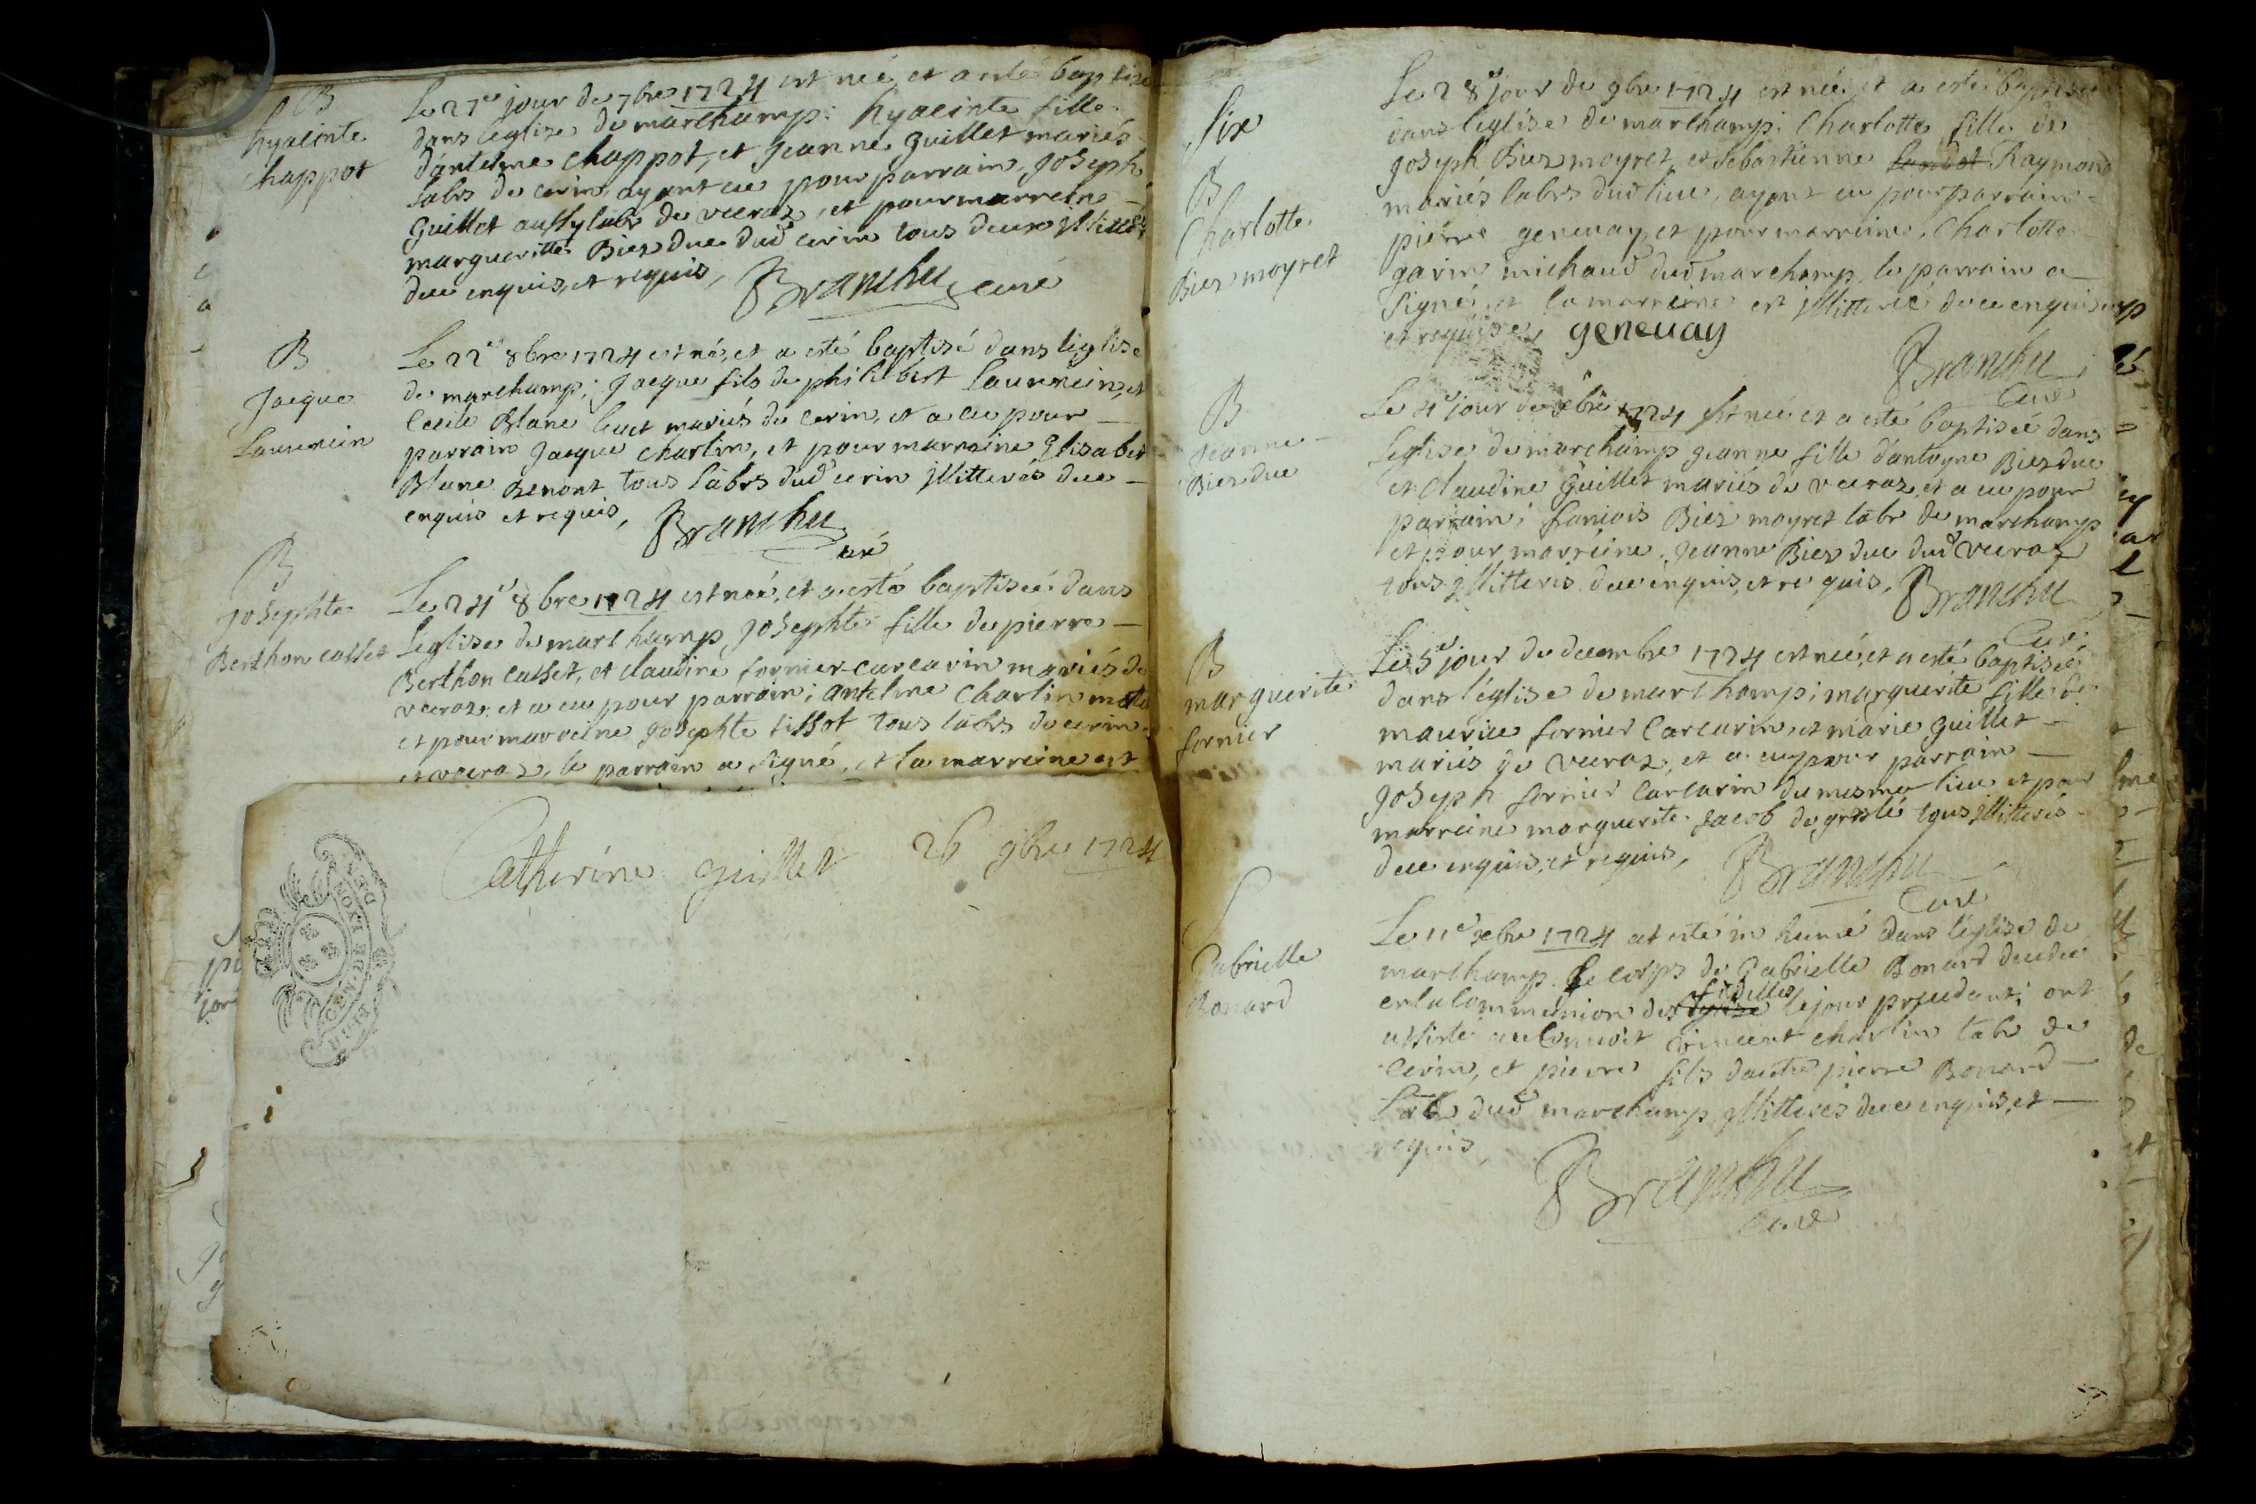 B
hyacinte
Chappot
Le 27e jour de 7bre 1724 est neé et a esté baptisé
dans leglise de marchamp: hyacinte fille
d'antelme Chappot, et Jeanne guillet mariés
labrs de cerin, ayant eu pour parrain, Joseph
guillet aussy labr de veeraz, et pour marreine
margueritte Biez duc dud cerin tous deux jllitterés
deue enquis, et requis, Branchu curé
B
Jacque
Laurencin
Le 22e 8bre 1724 est né, et a esté baptisé dans leglise
de marchamp; Jacque fils de philibert Laurencin, et
Cecile Blanc mariés de cerin, et a eu pour
parrain Jacque Charlin, et pour marraine Elisabet
Blanc Benont tous labrs dud cerin jllitterés deue
enquis et requis, Branchu
curé
B
Josephte
Berthon casset
Le 24e 8bre 1724 est neé, et a esté baptiseé dans
l'eglise de marchamp Josephte fille de pierre
Berthon casset, et claudine fornier carcarin mariés de
veeraz; et a eu pour parrain; antelme Charlin
et pour marreine Josephte tissot tous labrs de cerin
et veeraz, le parrain a signé, et la marreine est
Catherine guillet 26 9bre 1724
GEN DE LYON
Six
B
Charlotte
Biez moyret
Le 28e jour de 9bre 1724 est neé et a esté baptiseé
dans l'eglise de marchamp; Charlotte fille de
Joseph Biez moyret, et Sebastienne Raymond
mariés labrs dud lieu, ayant eu pour parrain
pierre geneuay, et pour marreine, Charlotte
garin michaud dud marchamp, le parrain a
signé, et la marreine est jllitteree deue enquise
et requise, geneuay
Branchu
Curé
B
Jeanne
Biez duc
Le 4e jour de xbre 1724 est neé et a esté baptiseé dans
l'eglise de marchamp Jeanne fille d'antoyne Biez duc
et Claudine guillet mariés de veeraz, et a eu pour
parrain; fançois Biez moyret labr de marchamp
et pour marreine, Jeanne Biez duc dud veeraz
tous jllitterés deue enquis, et requis, Branchu
Curé
B
marguerite
fornier
Le 5e jour de decembre 1724 est neé, et a esté baptiseé
dans l'eglise de marchamp; marguerite fille de
maurice fornier Carcarin, et marie guillet
mariés de veeraz, et a eu pour parrain
Joseph fornier carcarin du mesme lieu et pour
marreine marguerite Jacob de tous jllitterés
deue enquis, et requis, Branchu
Curé
S
Gabrielle
Bonard
Le 11e xbre 1724 at esté in humé dans l'eglise de
marchamp le corps de Gabrielle Bonard decedeé
en la Communion des fidelles le jour precedent; ont
assisté au Convoit vincent charlin labr de
Cerin, et pierre fils d'autre pierre Bonard
Labr dud marchamp jllitterés deue enquis, et
requis,
Branchu
curé